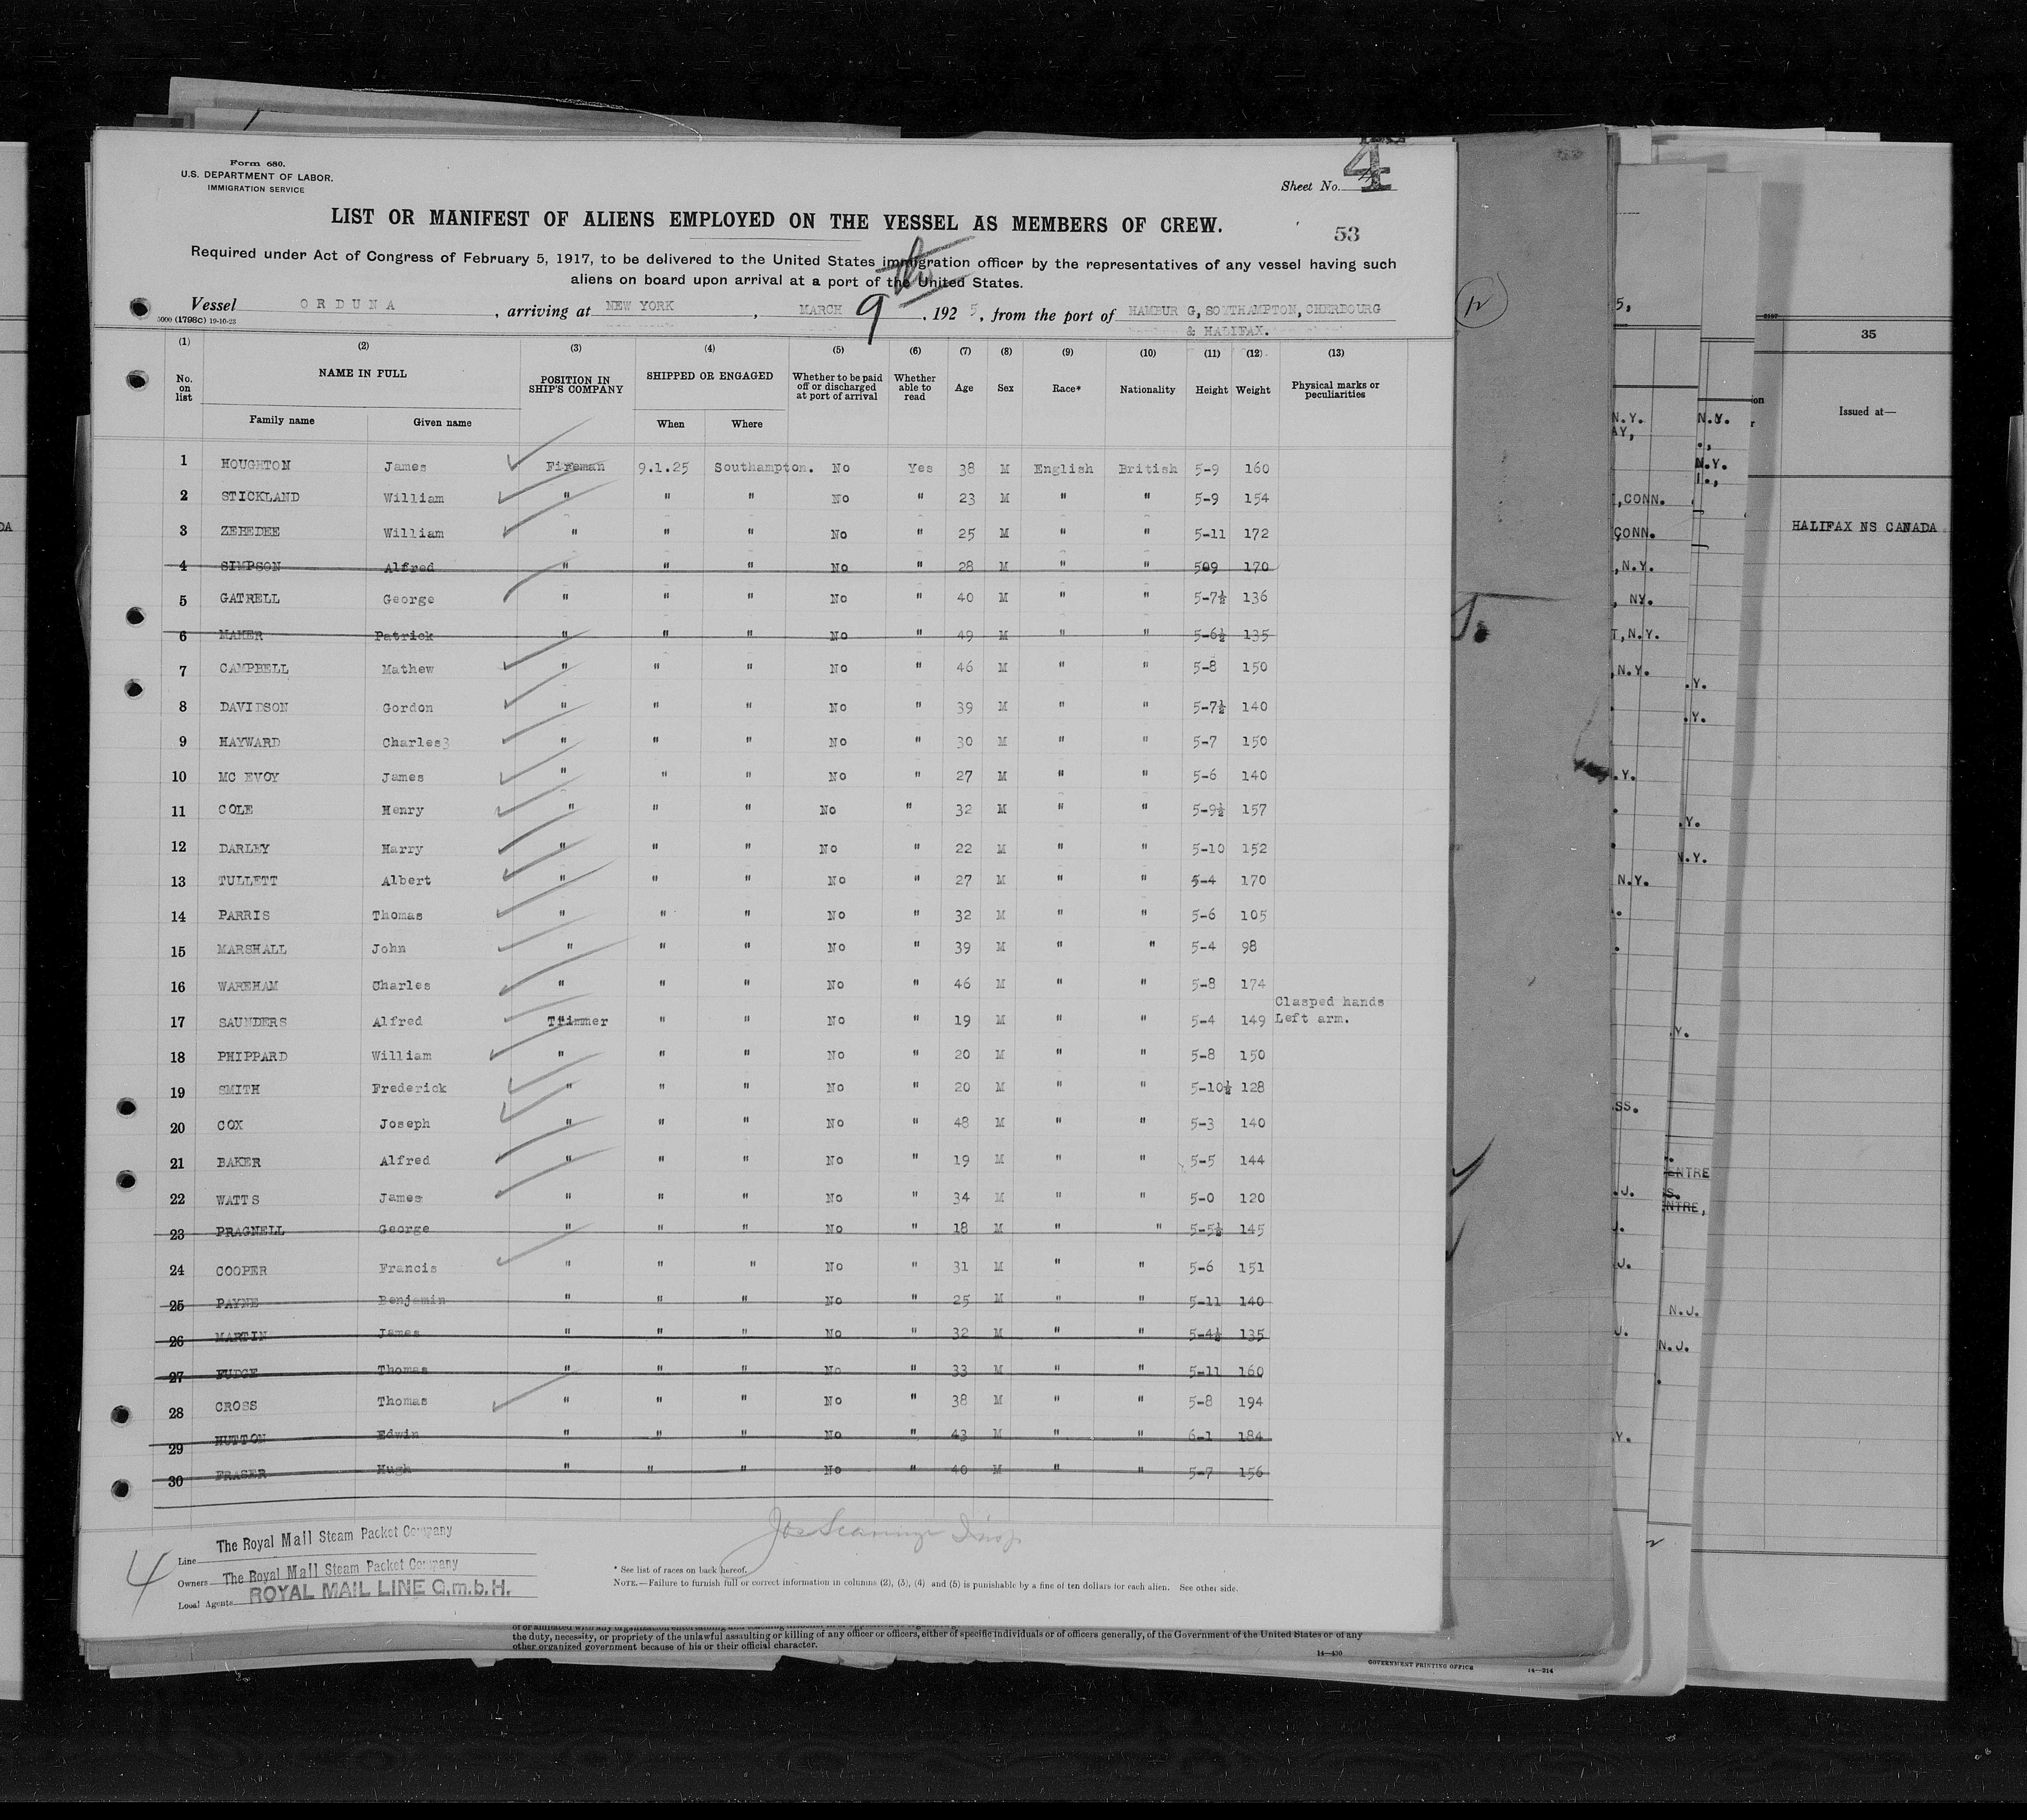 Form 680.
U.S. DEPARTMENT OF LABOR.
IMMIGRATION SERVICE
Sheet No. 4
LIST OR MANIFEST OF ALIENS EMPLOYED ON THE VESSEL AS MEMBERS OF CREW.
53
Required under Act of Congress of February 5, 1917, to be delivered to the United States immigration officer by the representatives of any vessel having such
aliens on board upon arrival at a port of the United States.
Vessel ORDUNA, arriving at NEW YORK, MARCH 9th, 1925, from the port of HAMBUR G, SOUTHAMPTON, CHERBOURG
& HALIFAX.
5000 (1798c) 19-10-23
(1) (2) (3) (4) (5) (6) (7) (8) (9) (10) (11) (12) (13)
No. on list NAME IN FULL POSITION IN SHIP'S COMPANY SHIPPED OR ENGAGED Whether to be paid off or discharged at port of arrival Whether able to read Age Sex Race* Nationality Height Weight Physical marks or peculiarities
Family name Given name When Where
1 HOUGHTON James Fireman 9.1.25 Southampton. No Yes 38 M English British 5-9 160
2 STICKLAND William " " " No " 23 M " " 5-9 154
3 ZEBEDEE William " " " No " 25 M " " 5-11 172
4 SIMPSON Alfred " " " No " 28 M " " 509 170
5 GATRELL George " " " No " 40 M " " 5-7½ 136
6 MAHER Patrick " " " No " 49 M " " 5-6½ 135
7 CAMPBELL Mathew " " " No " 46 M " " 5-8 150
8 DAVIDSON Gordon " " " No " 39 M " " 5-7½ 140
9 HAYWARD Charles3 " " " No " 30 M " " 5-7 150
10 MC EVOY James " " " No " 27 M " " 5-6 140
11 COLE Henry " " " No " 32 M " " 5-9½ 157
12 DARLEY Harry " " " No " 22 M " " 5-10 152
13 TULLETT Albert " " " No " 27 M " " 5-4 170
14 PARRIS Thomas " " " No " 32 M " " 5-6 105
15 MARSHALL John " " " No " 39 M " " 5-4 98
16 WAREHAM Charles " " " No " 46 M " " 5-8 174
17 SAUNDERS Alfred Trimmer " " No " 19 M " " 5-4 149 Clasped hands Left arm.
18 PHIPPARD William " " " No " 20 M " " 5-8 150
19 SMITH Frederick " " " No " 20 M " " 5-10½ 128
20 COX Joseph " " " No " 48 M " " 5-3 140
21 BAKER Alfred " " " No " 19 M " " 5-5 144
22 WATTS James " " " No " 34 M " " 5-0 120
23 PRAGNELL George " " " No " 18 M " " 5-5½ 145
24 COOPER Francis " " " No " 31 M " " 5-6 151
25 PAYNE Benjamin " " " No " 25 M " " 5-11 140
26 MARTIN James " " " No " 32 M " " 5-4½ 135
27 FUDGE Thomas " " " No " 33 M " " 5-11 160
28 CROSS Thomas " " " No " 38 M " " 5-8 194
29 HUTTON Edwin " " " No " 43 M " " 6-1 184
30 FRASER Hugh " " " No " 40 M " " 5-7 156
4
Line The Royal Mail Steam Packet Company
Owners The Royal Mail Steam Packet Company
Local Agents ROYAL MAIL LINE G.m.b.H.
* See list of races on back hereof.
NOTE.—Failure to furnish full or correct information in columns (2), (3), (4) and (5) is punishable by a fine of ten dollars for each alien. See other side.
the duty, necessity, or propriety of the unlawful assaulting or killing of any officer or officers, either of specific individuals or of officers generally, of the Government of the United States or of any
other organized government because of his or their official character.
14—430
GOVERNMENT PRINTING OFFICE
14—314
35
Issued at—
HALIFAX NS CANADA